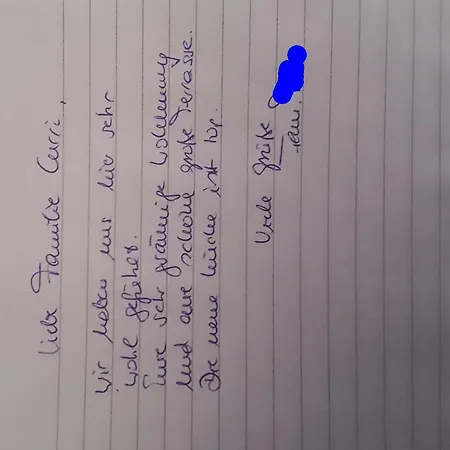 Liebe Familie Curri,
wir haben uns hier sehr
wohl gefühlt.
Eine sehr geräumige Wohnung
und eine schöne große Terrasse.
Die neue Küche ist top.
Viele Grüße
Fam.